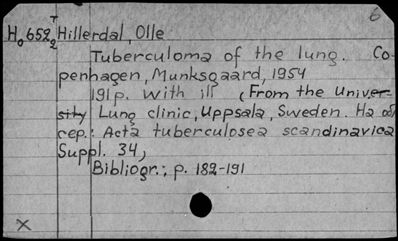 6
T
Ho652 Hillerdal, Olle
2
Tuberculoma of the lung. Co-
penhagen, Munksgaard, 1954
191p. With ill (From the Univer-
sity Lung clinic, Uppsala, Sweden. Ha
cep.: Acta tuberculosea scandinavica
Suppl. 34)
Bibliogr.; p. 182-191
X